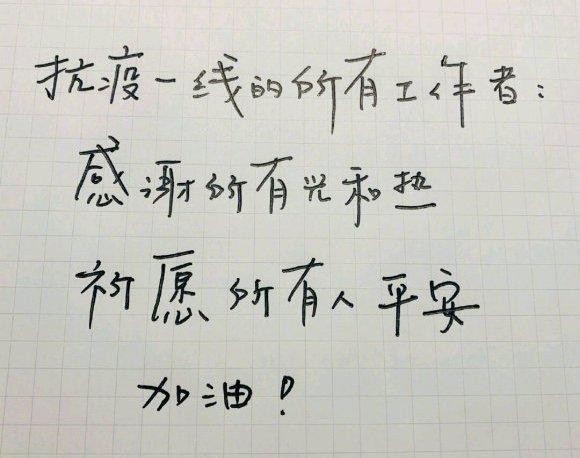 抗疫一线的所有工作者:
感谢所有光和热
祈愿所有人平安
加油!